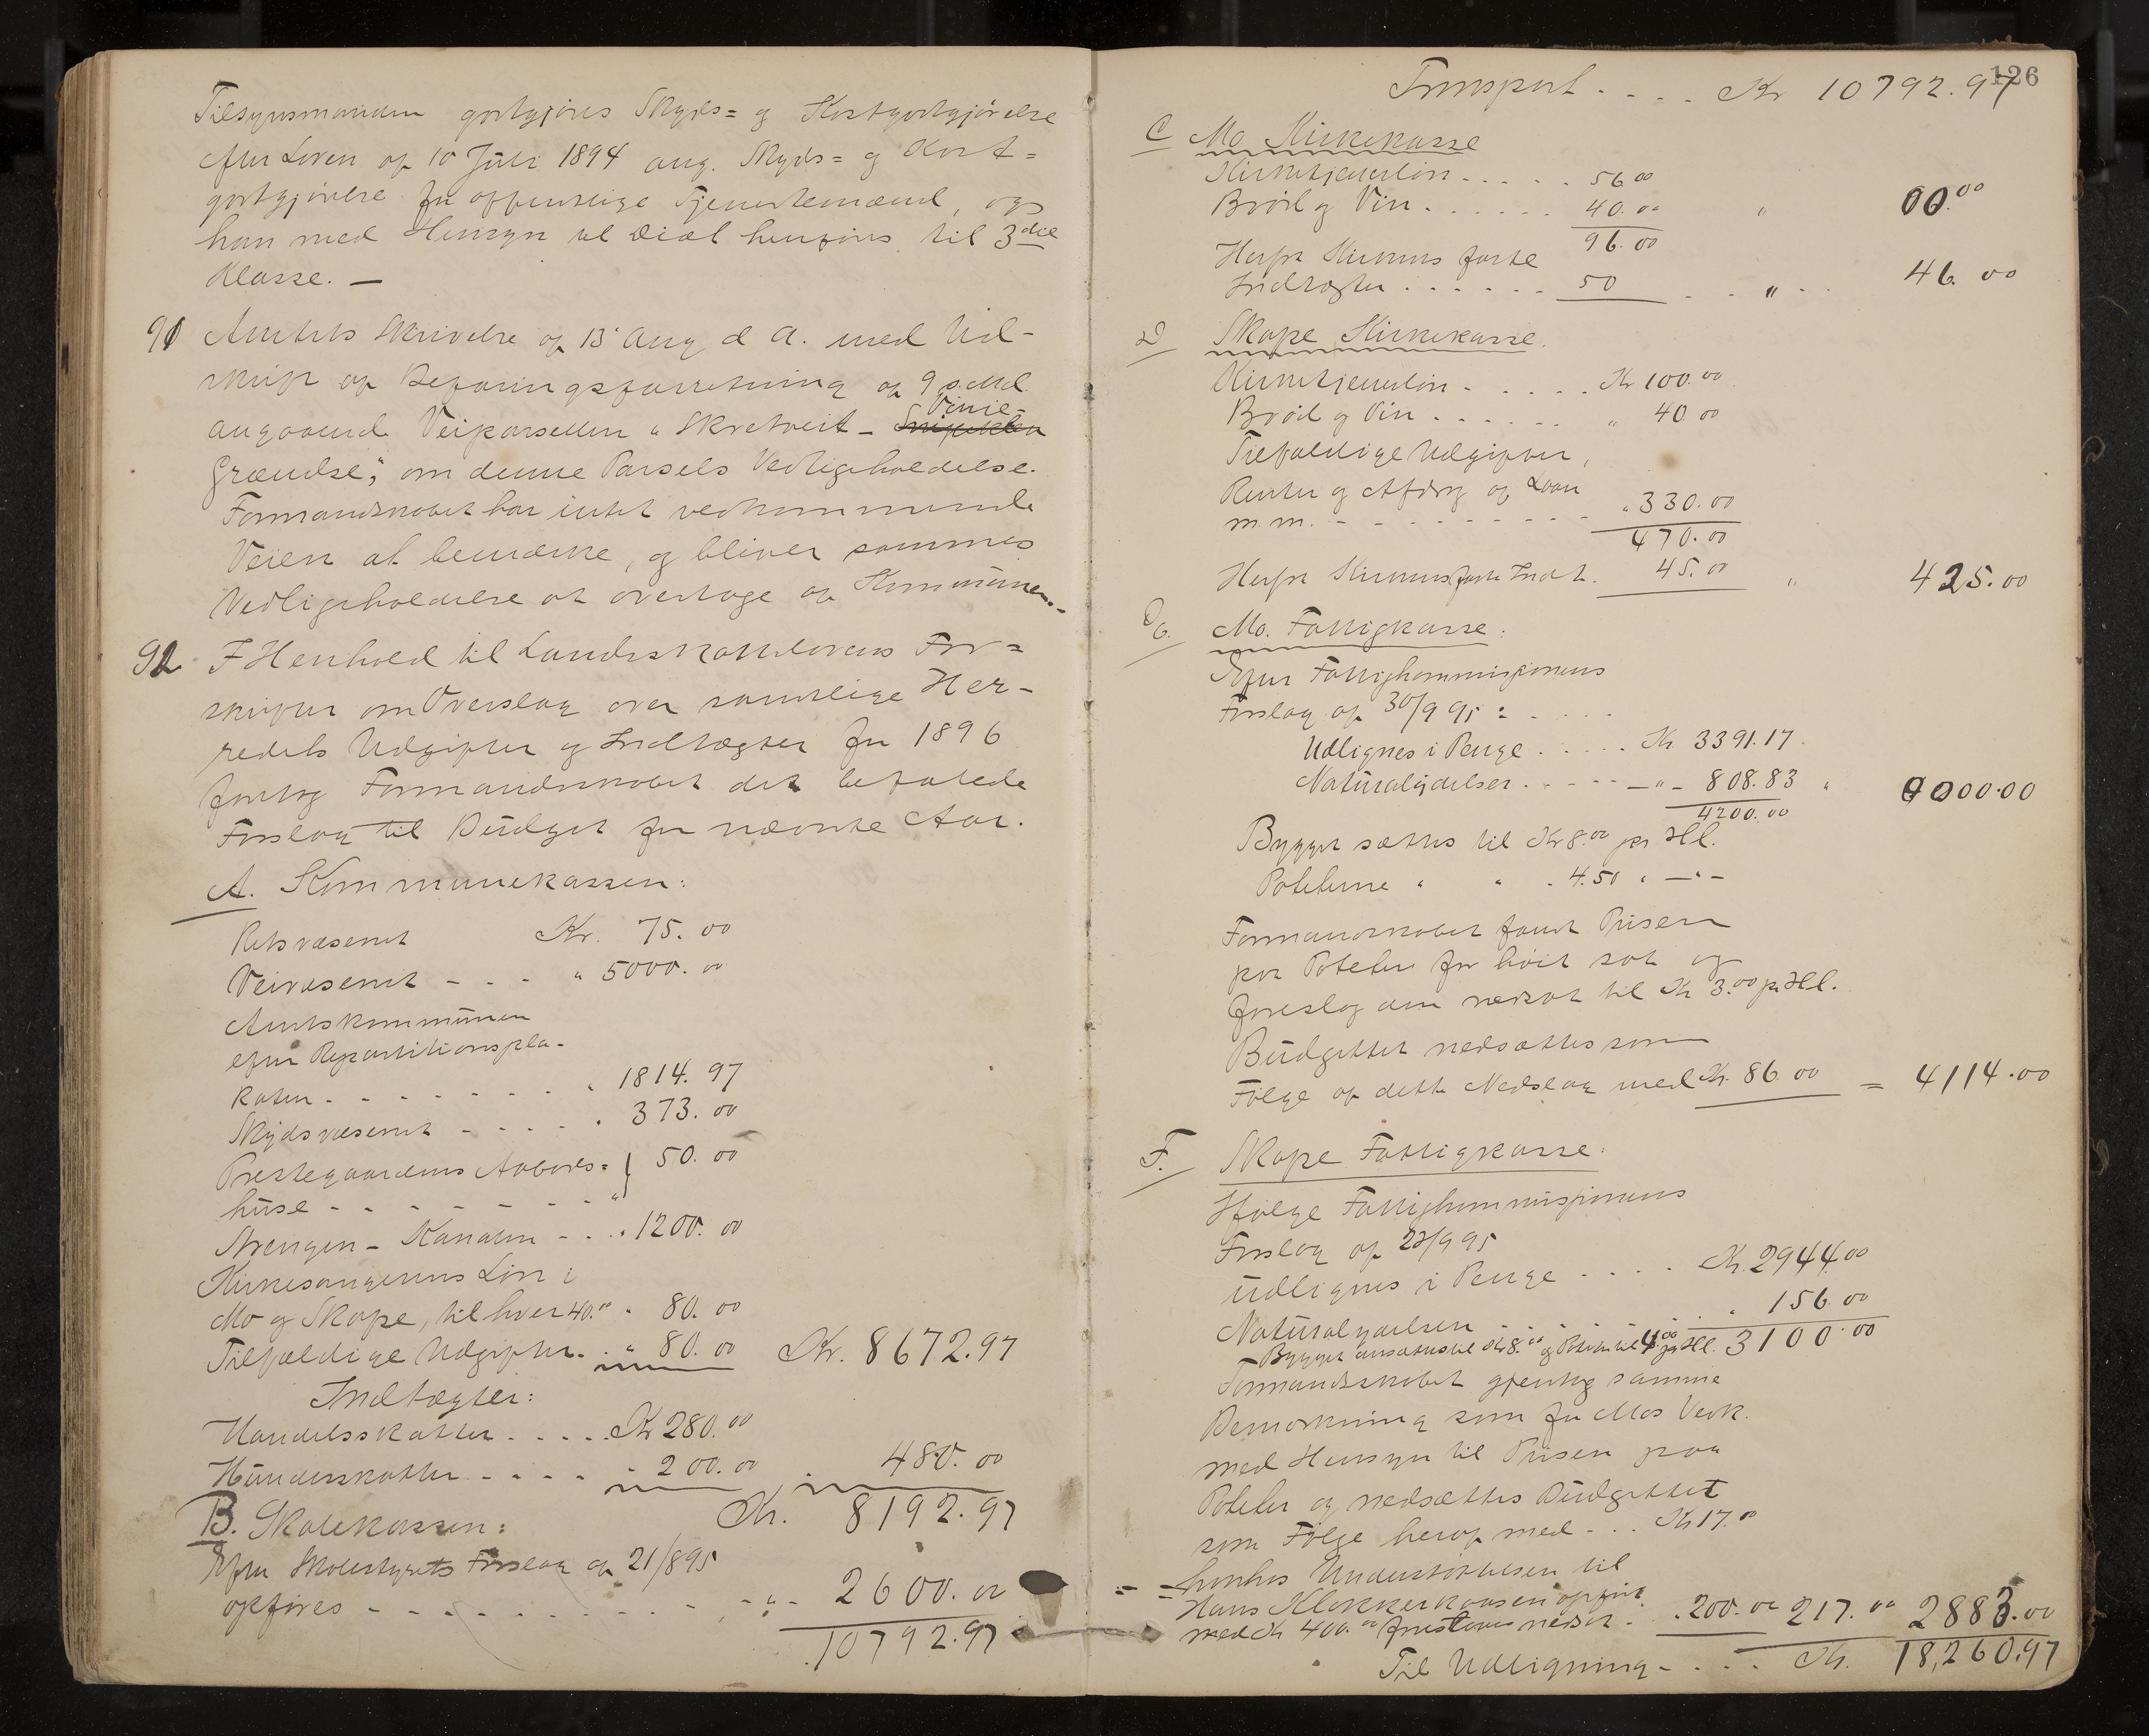 Tilsynsmanden godtgjøres Skyds= og Kostgodtgjørelse
efter Loven af 10 Juli 1894 ang. Skyds= og Kost=
godtgjørelse for offentlige Tjenestemænd, og
han med Hensyn til Diæt henføres til 3die
Klasse. —
91 Amtets Skrivelse af 13 Aug d A. med Ud-
skrift af Befaringsforretning af 9 s. Md.
angaaende Veiparsellen "Skretveit - Vinje-
Grændse", om denne Parsels Vedligeholdelse.
Formandskabet har intet vedkommende
Veien at bemærke, og bliver sammes
Vedligeholdelse at overtage af Kommunen.-
92 I Henhold til Landsskattelovens For=
skrifter om Overslag over samtlige Her-
redets Udgifter og Indtægter for 1896
foretog Formandskabet det befalede
Forslag til Budget for nævnte Aar.
A. Kommunekassen:
Retsvæsenet Kr. 75.00
Veivæsenet - - - " 5000.00
Amtskommunen
efter Repartitionspla-
katen - - - - - - " 1814.97
Skydsvæsenet - - - - " 373.00
Prestegaardens Aabods= } 50.00
huse - - - - - - "
Strengen - Kanalen - - " 1200.00
Kirkesangerens Løn i
Mo og Skafse, til hver 40.00 " 80.00
Tilfældige Udgifter. . " 80.00 Kr. 8672.97
Indtægter:
Handelsskatter . . . . Kr 280.00
Hundeskatter - - - - " 200.00 " 480.00
Kr. 8192.97
B. Skolekassen:
Efter Skolestyrets Forslag af 21/8 95
opføres - - - - - - - - - " - 2600.00
10792.97
126
Transport . . . . Kr 10792.97
C Mo Kirkekasse
Kirketjenerløn . . . . . 56.00
Brød og Vin . . . . . . 40.00 " 00.00
96.00
Herfra Kirkens faste
Indtægter . . . . . . 50 . . " . . 46.00
D Skafse Kirkekasse.
Kirketjenerløn - . . . . Kr 100.00
Brød og Vin . . . . . . " 40.00
Tilfældige Udgifter,
Renter og Afdrag af Laan
m.m. - - - - - - - - " 330.00
470.00
Herfra Kirkens faste Indt. 45.00 " 425.00
Mo. Fattigkasse:
Efter Fattigkommissionens
Forslag af 30/9 95 : . . . .
Udlignes i Penge . . . . . Kr. 3391.17
Naturalydelser . . - - - - " - 808.83 "
4200.00
Bygget sættes til Kr 8.00 pr Hl.
Poteterne " " " 4.50 " — " —
Formandskabet fandt Prisen
paa Poteter for høit sat og
foreslog den nedsat til Kr 3.00 pr. Hl.
Budgettet nedsættes som
Følge af dette Nedslag med Kr. 86.00 = 4114.00
F. Skafse Fattigkasse:
Ifølge Fattigkommissionens
Forslag af 23/9 95
udlignes i Penge . . . . Kr. 2944.00
Naturalydelsen . . . . . " 156.00
Bygget ansættes til Kr 8.00 og Poteter til 4.00 pr Hl. 3100.00
Formandsskabet gjentog samme
Bemærkning som for Mos Vedk.
med Hensyn til Prisen paa
Poteter og nedsættes Budgettet
som Følge heraf med - . . Kr 17.00
Hans Klokkerkaasen opført
med Kr 400.00 foreslaaes nedsat . . 200.00 217.00 2883.00
Til Udligning - . . . . Kr. 18,260.97